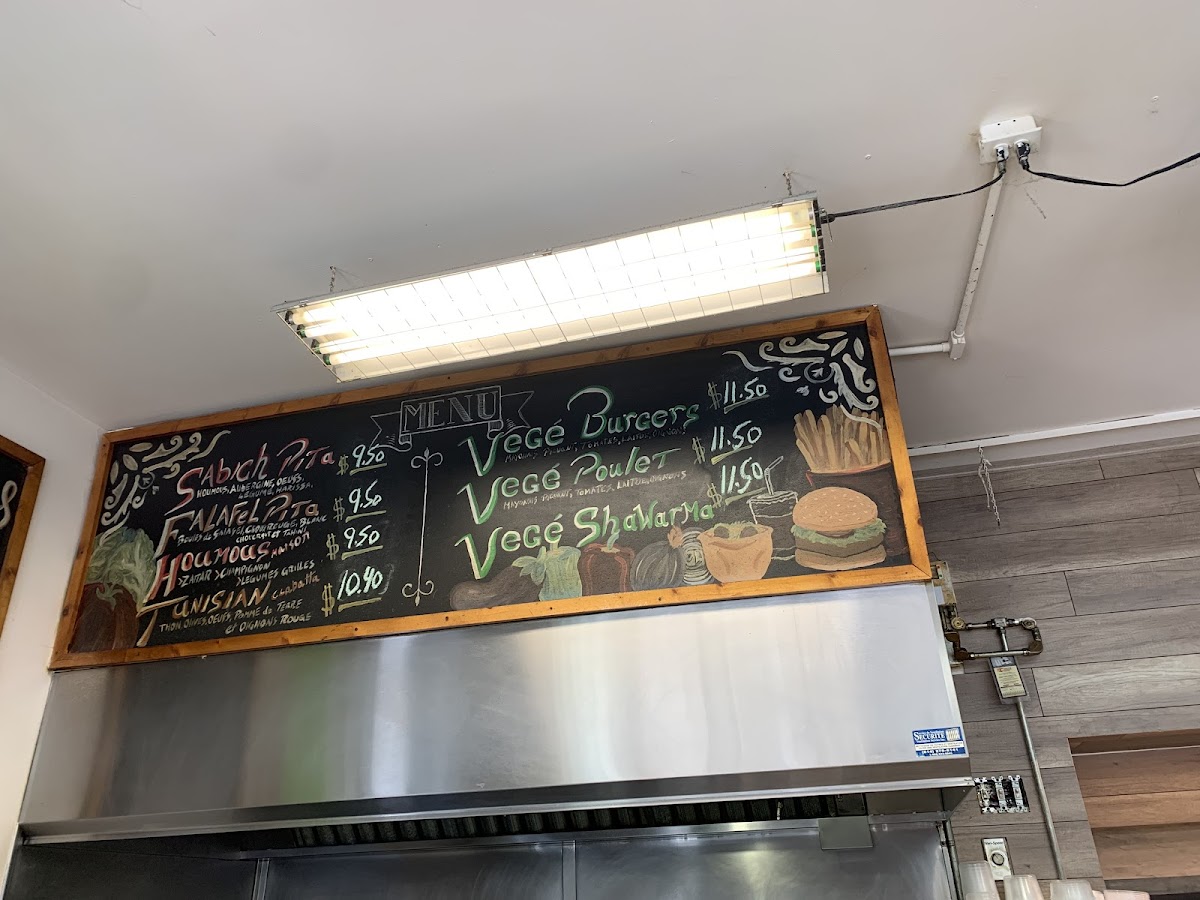 MENU
SABICH PITA $9.50
HOUMOUS, AUBERGINE, OEUFS,
LÉGUME, HARISSA.
FALAFEL PITA $9.50
BOULES DE FALAFEL, CHOU ROUGE, BLANC
CHOUCRAUT ET TAHINI
HOUMOUS MAISON $9.50
>ZAITAR >CHAMPIGNON
>LEGUMES GRILLES
TUNISIAN CIABATTA $10.40
THON, OLIVES, OEUFS, POMME de TERRE
et OIGNONS ROUGE
VEGÉ BURGERS $11.50
TOMATES, LAITUE, OIGNONS
VEGÉ POULET $11.50
PIQUANT, TOMATES, LAITUE, OIGNONS
VEGÉ SHAWARMA $11.50
SÉCURITÉ